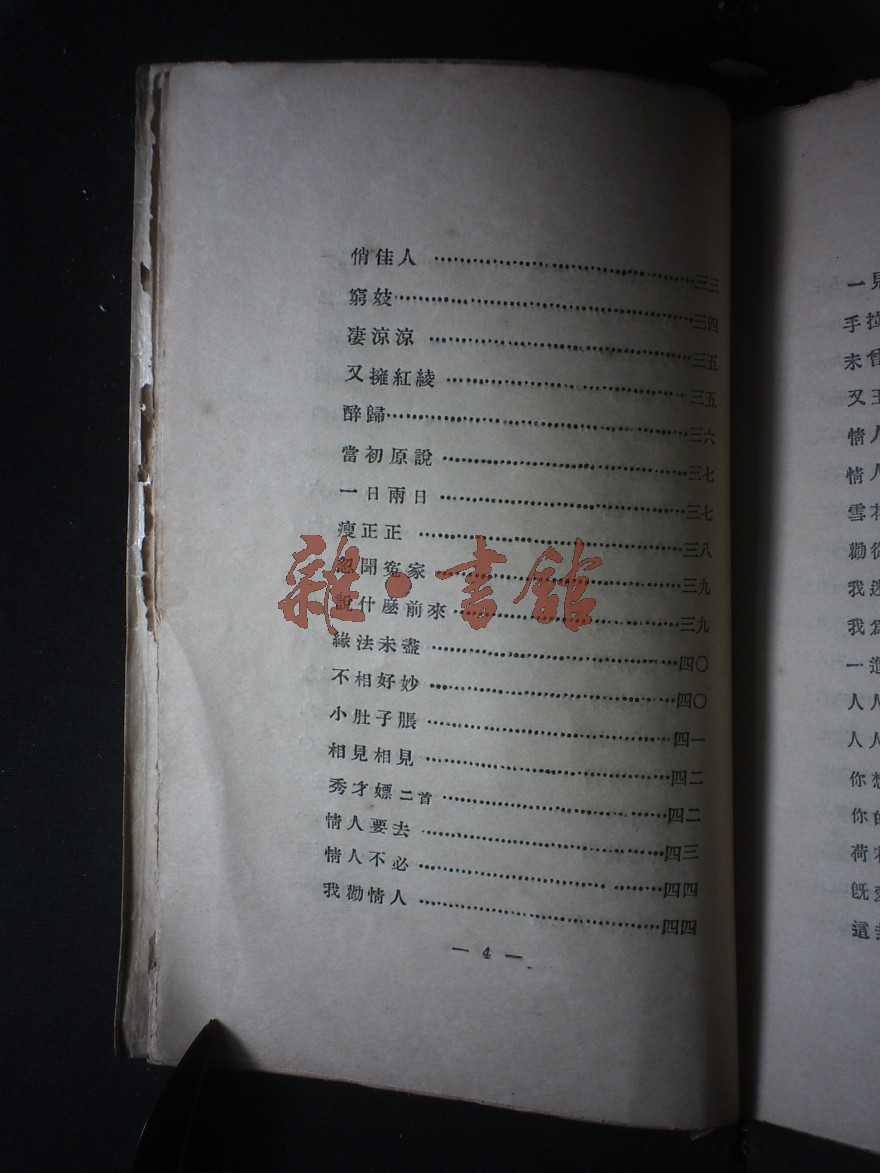 俏佳人……三三
窮妓……三四
凄涼涼……三五
又擁紅綾……三五
醉歸……三六
當初原說……三七
一日兩日……三七
瘦正正……三八
忽聞寃家……三九
說什麽前來……三九
緣法未盡……四〇
不相好妙……四〇
小肚子脹……四一
相見相見……四二
秀才嫖二首……四二
情人要去……四三
情人不必……四四
我勸情人……四四
— 4 —
雜·書館
一見
手拉
未曾
又王
情人
情人
雪
勸從
我
我爲
一進
人人
人人
你想
你的
荷
旣
這